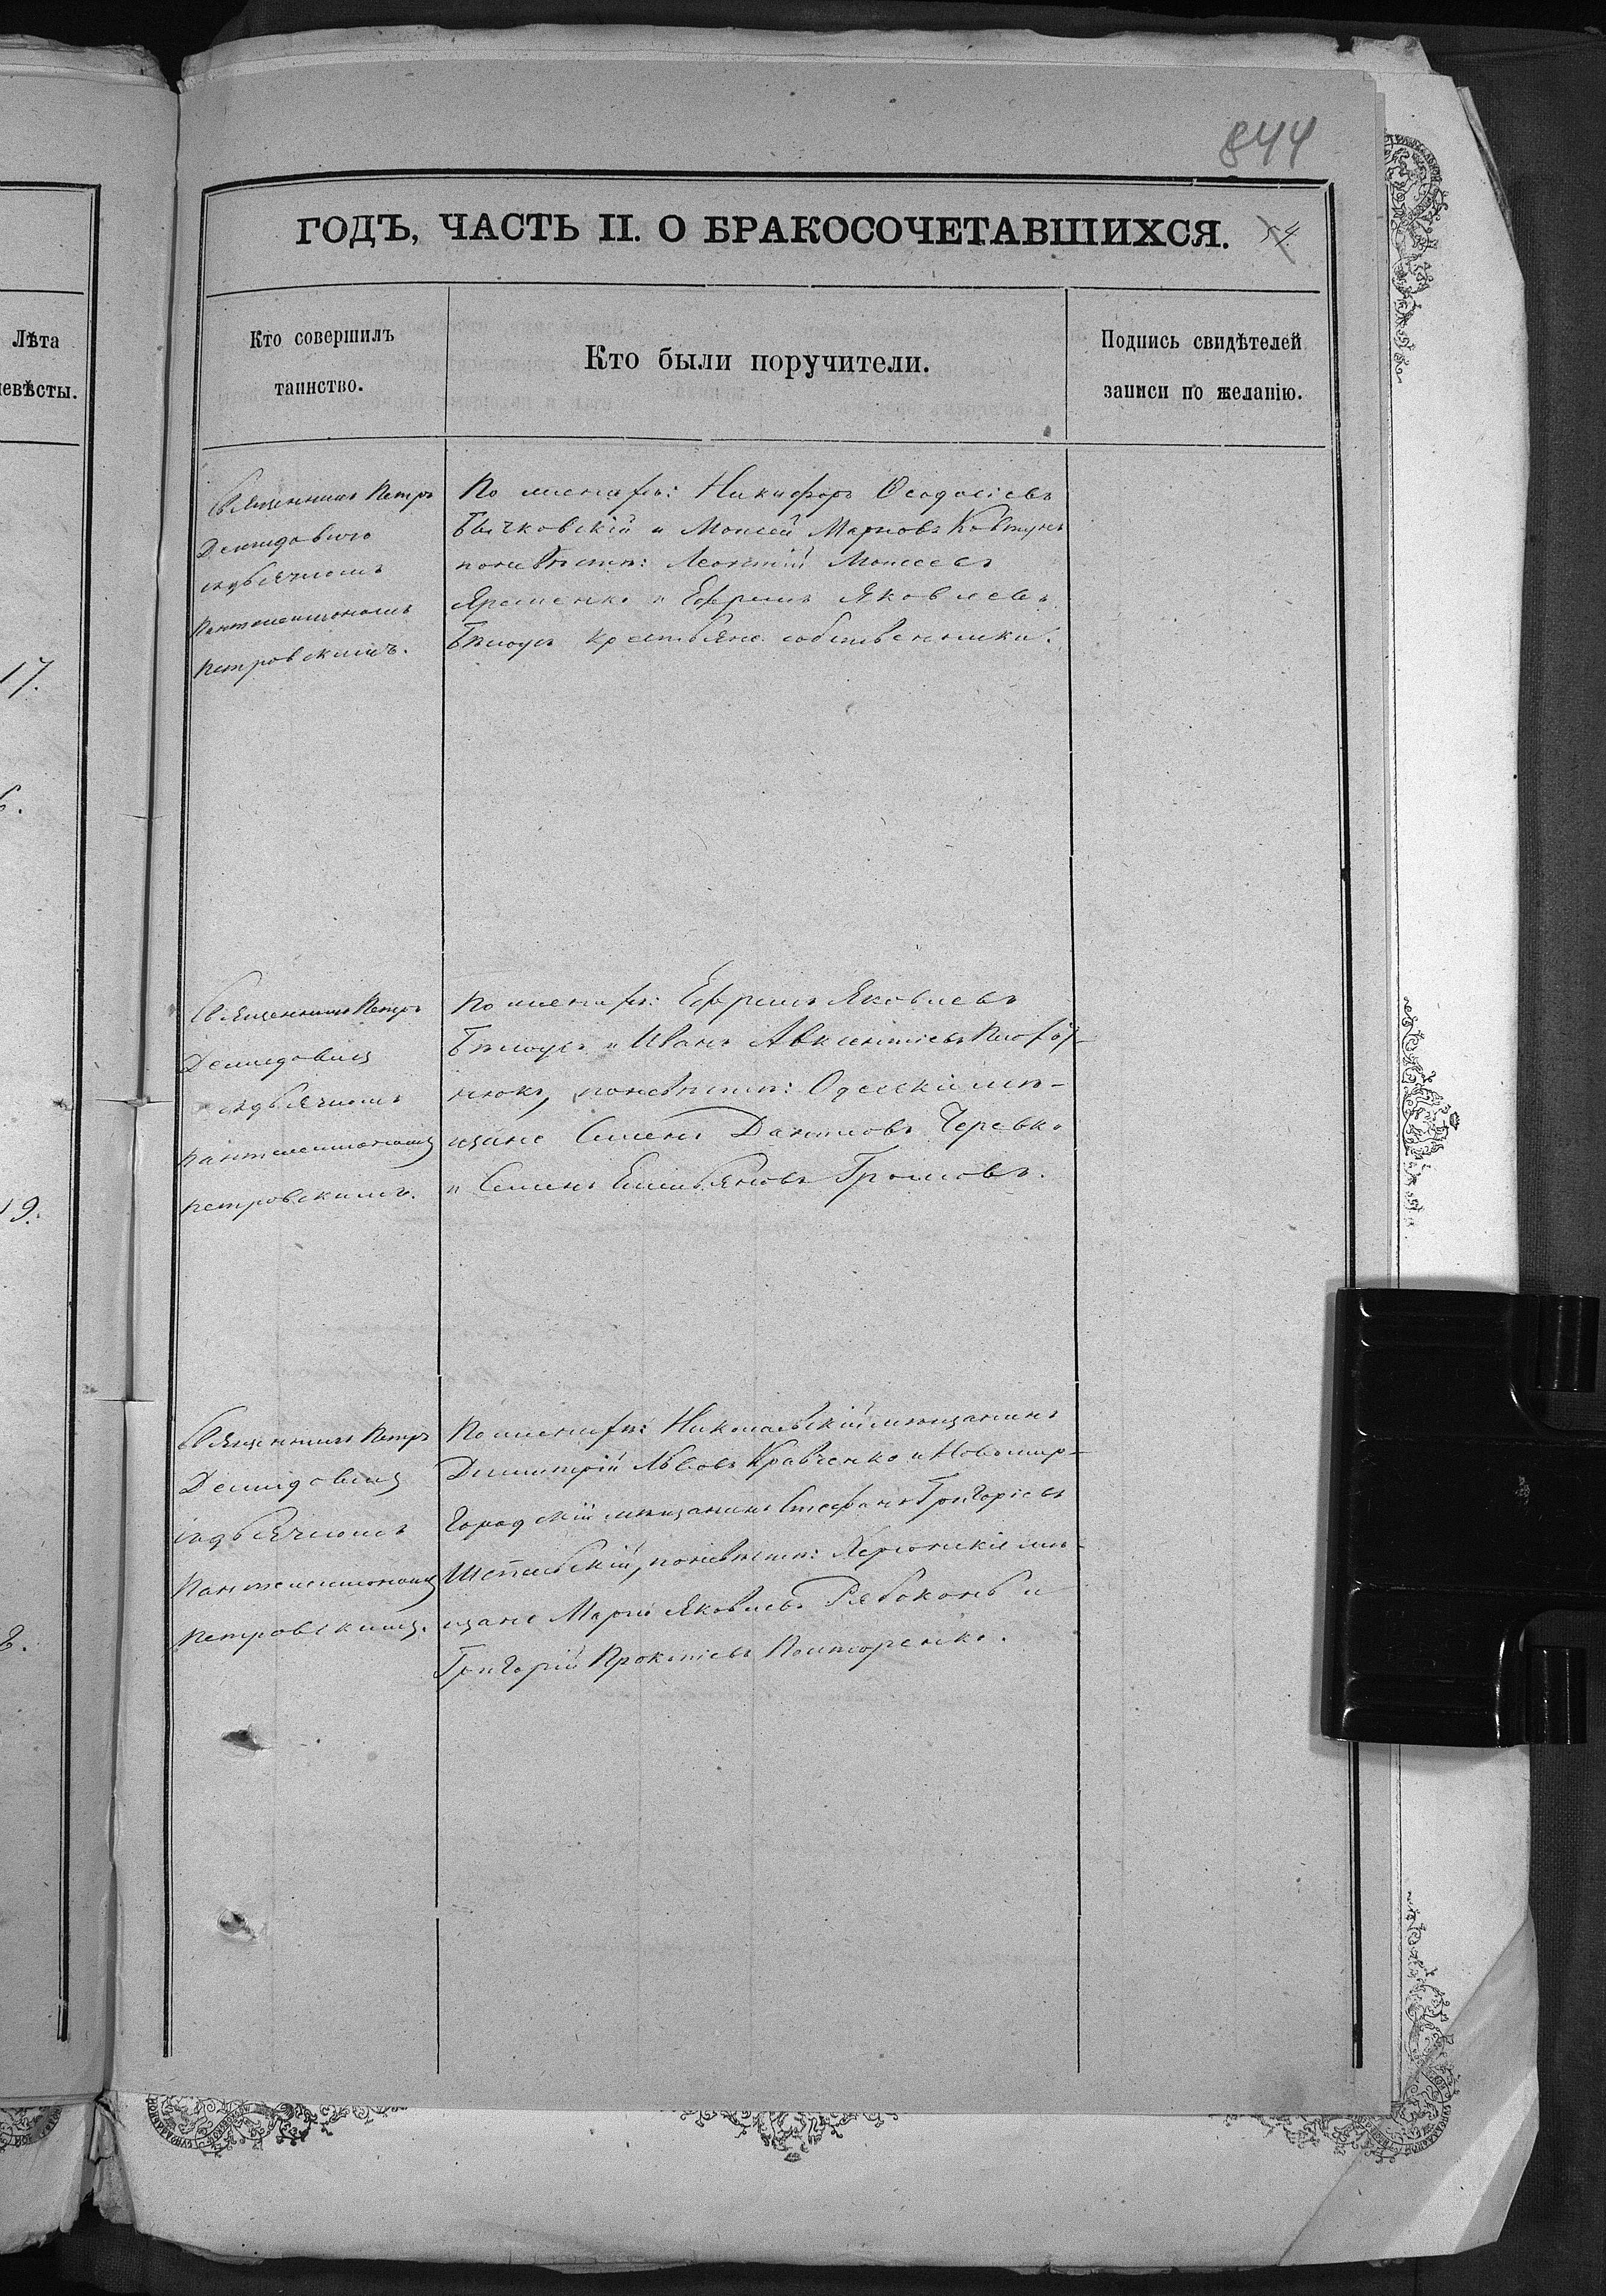 844
ГОДЪ, ЧАСТЬ II. О БРАКОСОЧЕТАВШИХСЯ.
Лѣта
невѣсты.
Кто совершилъ
таинство.
Кто были поручители.
Подпись свидѣтелей
записи по желанію.
17.
Священникъ Петръ
Демидовичъ
съ дьячкомъ
Пантелеимономъ
Петровскимъ.
По женихѣ: Никифоръ Ѳеодосіевъ
Бычковскій и Моисей Марковъ Ковтунъ
по невѣстѣ: Леонтій Моисеевъ
Яременко и Ефремъ Яковлевъ
Бѣлоусъ крестьяне собственники.
19.
Священникъ Петръ
Демидовичъ
съ дьячкомъ
Пантелеимономъ
Петровскимъ.
По женихѣ: Ефремъ Яковлевъ
Бѣлоусъ и Иванъ Авксентіевъ
по невѣстѣ: Одесскіе мѣ-
щане Семенъ Даниловъ Черевко
и Семенъ Емельяновъ Громовъ.
Священникъ Петръ
Демидовичъ
съ дьячкомъ
Пантелеимономъ
Петровскимъ.
По женихѣ: Николаевскій мѣщанинъ
Димитрій Львовъ Кравченко и Новомир-
городскій мѣщанинъ Стефанъ Григоріевъ
по невѣстѣ: Херсонскіе мѣ-
щане Марко Яковлевъ Рябоконь и
Григорій Прокопіевъ